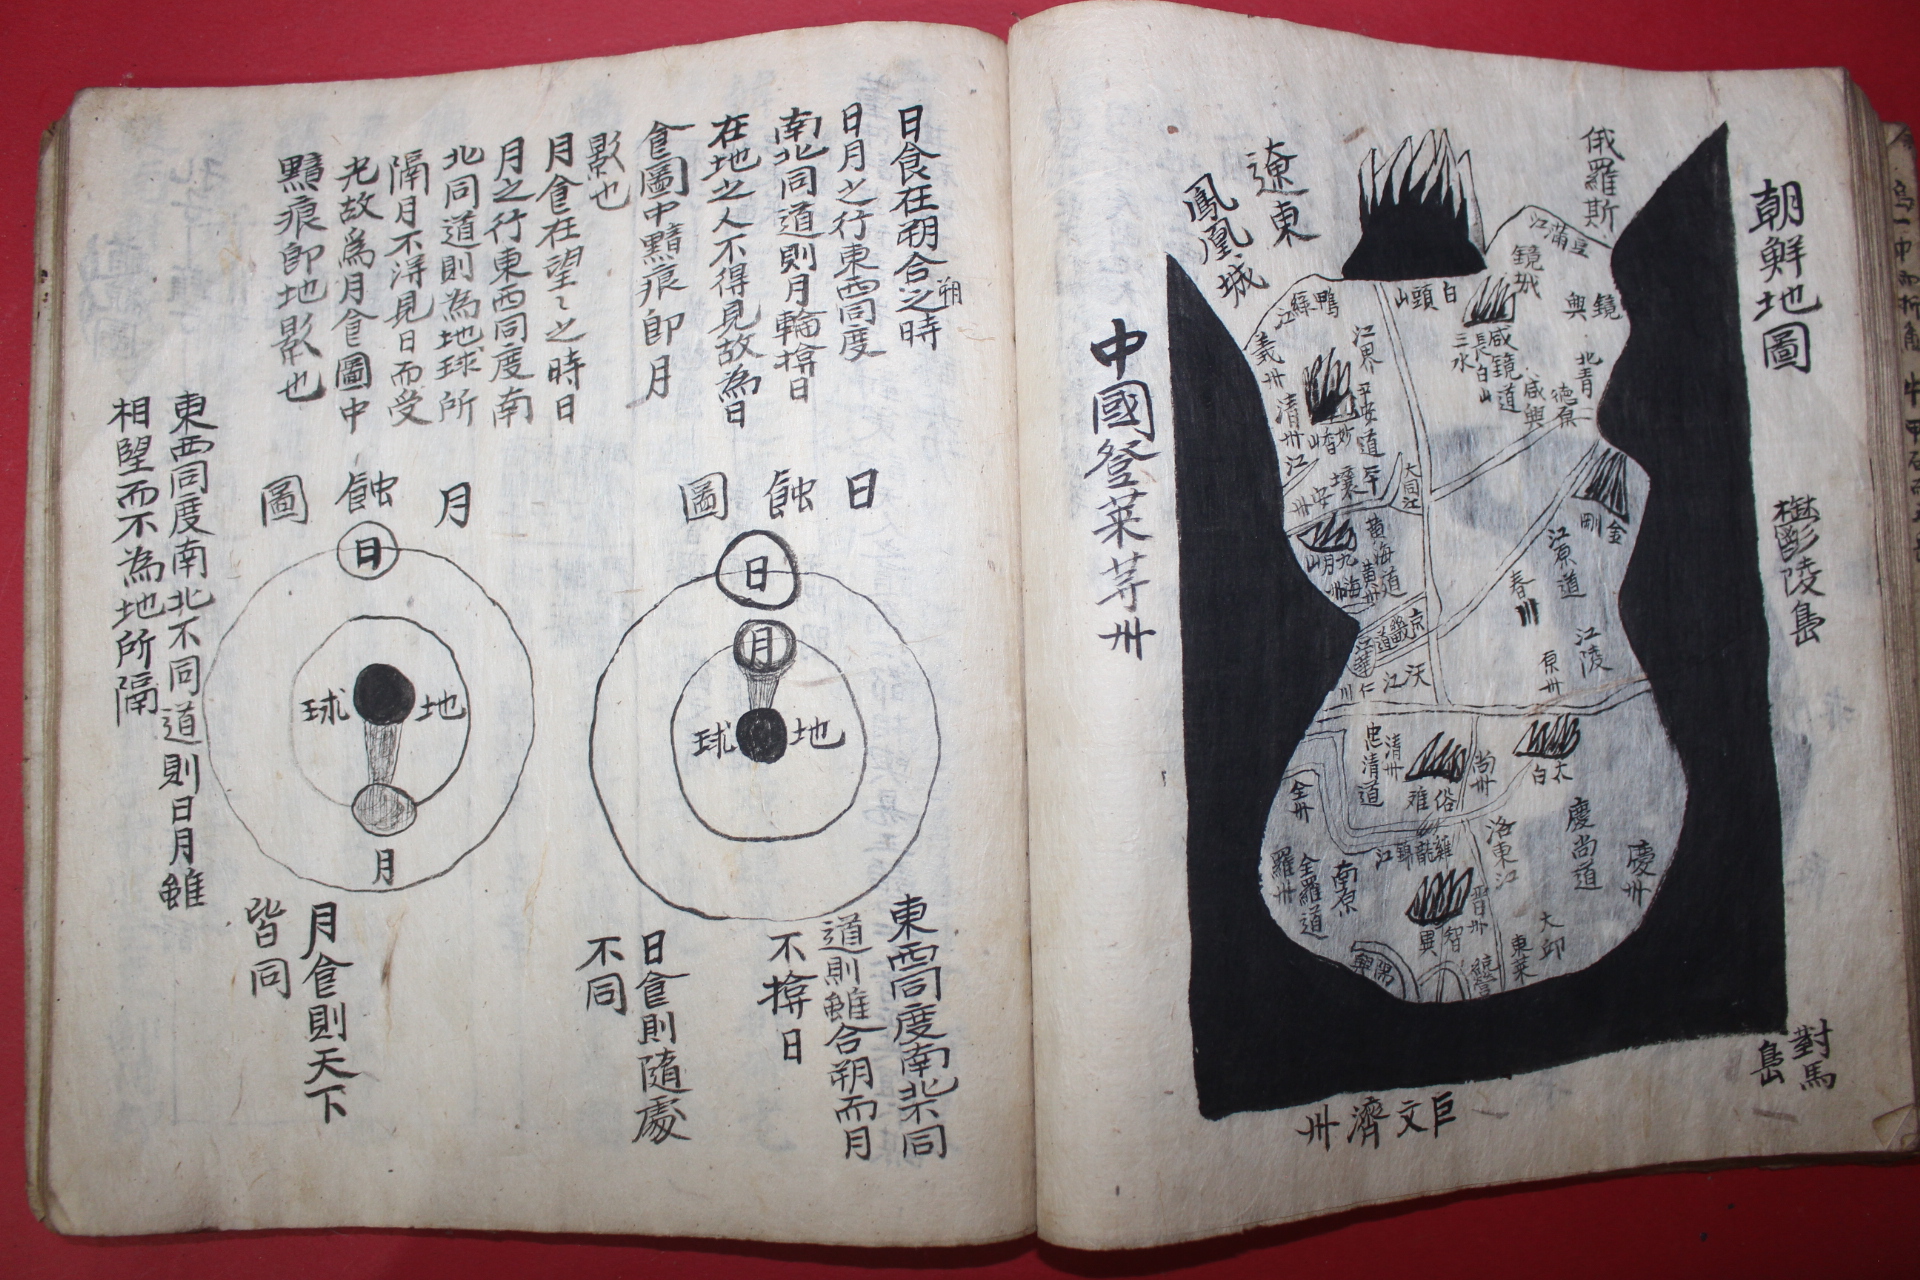 朝鮮地圖
俄羅斯
遼東
鳳凰城
中國登萊等州
欝陵島
對馬島
巨文濟州
豆滿江
鏡城
鏡興
白頭山
鴨綠江
義州
江界
平安道
清州江
妙香山
三水
長白山
咸鏡道
北青
德原
咸興
大同江
平壤
安州
金剛
江原道
春川
江陵
原州
黃海道
黃州
海州
九月山
京畿道
江華
仁川
沃江
忠清道
清州
俗难
尚州
太白
慶尚道
慶州
洛東江
全州
羅州
全羅道
南原
錦江
雞龍
智異
晋州
大邱
東萊
統營
日食在朔合朔之時
日月之行東西同度
南北同道則月輪揜日
在地之人不得見故為日
食圖中黯痕即月
影也
月食在望〻之時日
月之行東西同度南
北同道則為地球所
隔月不得見日而受
光故為月食圖中
黯痕即地影也
日蝕圖
日
月
地球
東西同度南北不同
道則雖合朔而月
不揜日
日食則隨處
不同
月蝕圖
日
地球
月
月食則天下
皆同
東西同度南北不同道則日月雖
相望而不為地所隔